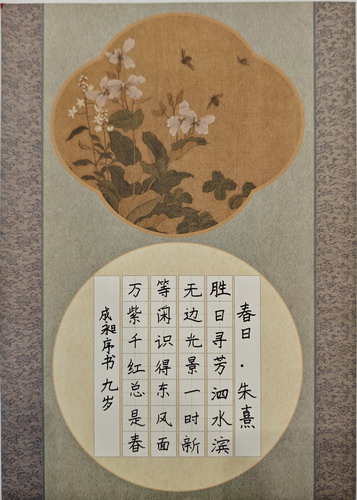 春日·朱熹
胜日寻芳泗水滨
无边光景一时新
等闲识得东风面
万紫千红总是春
成昶序书 九岁